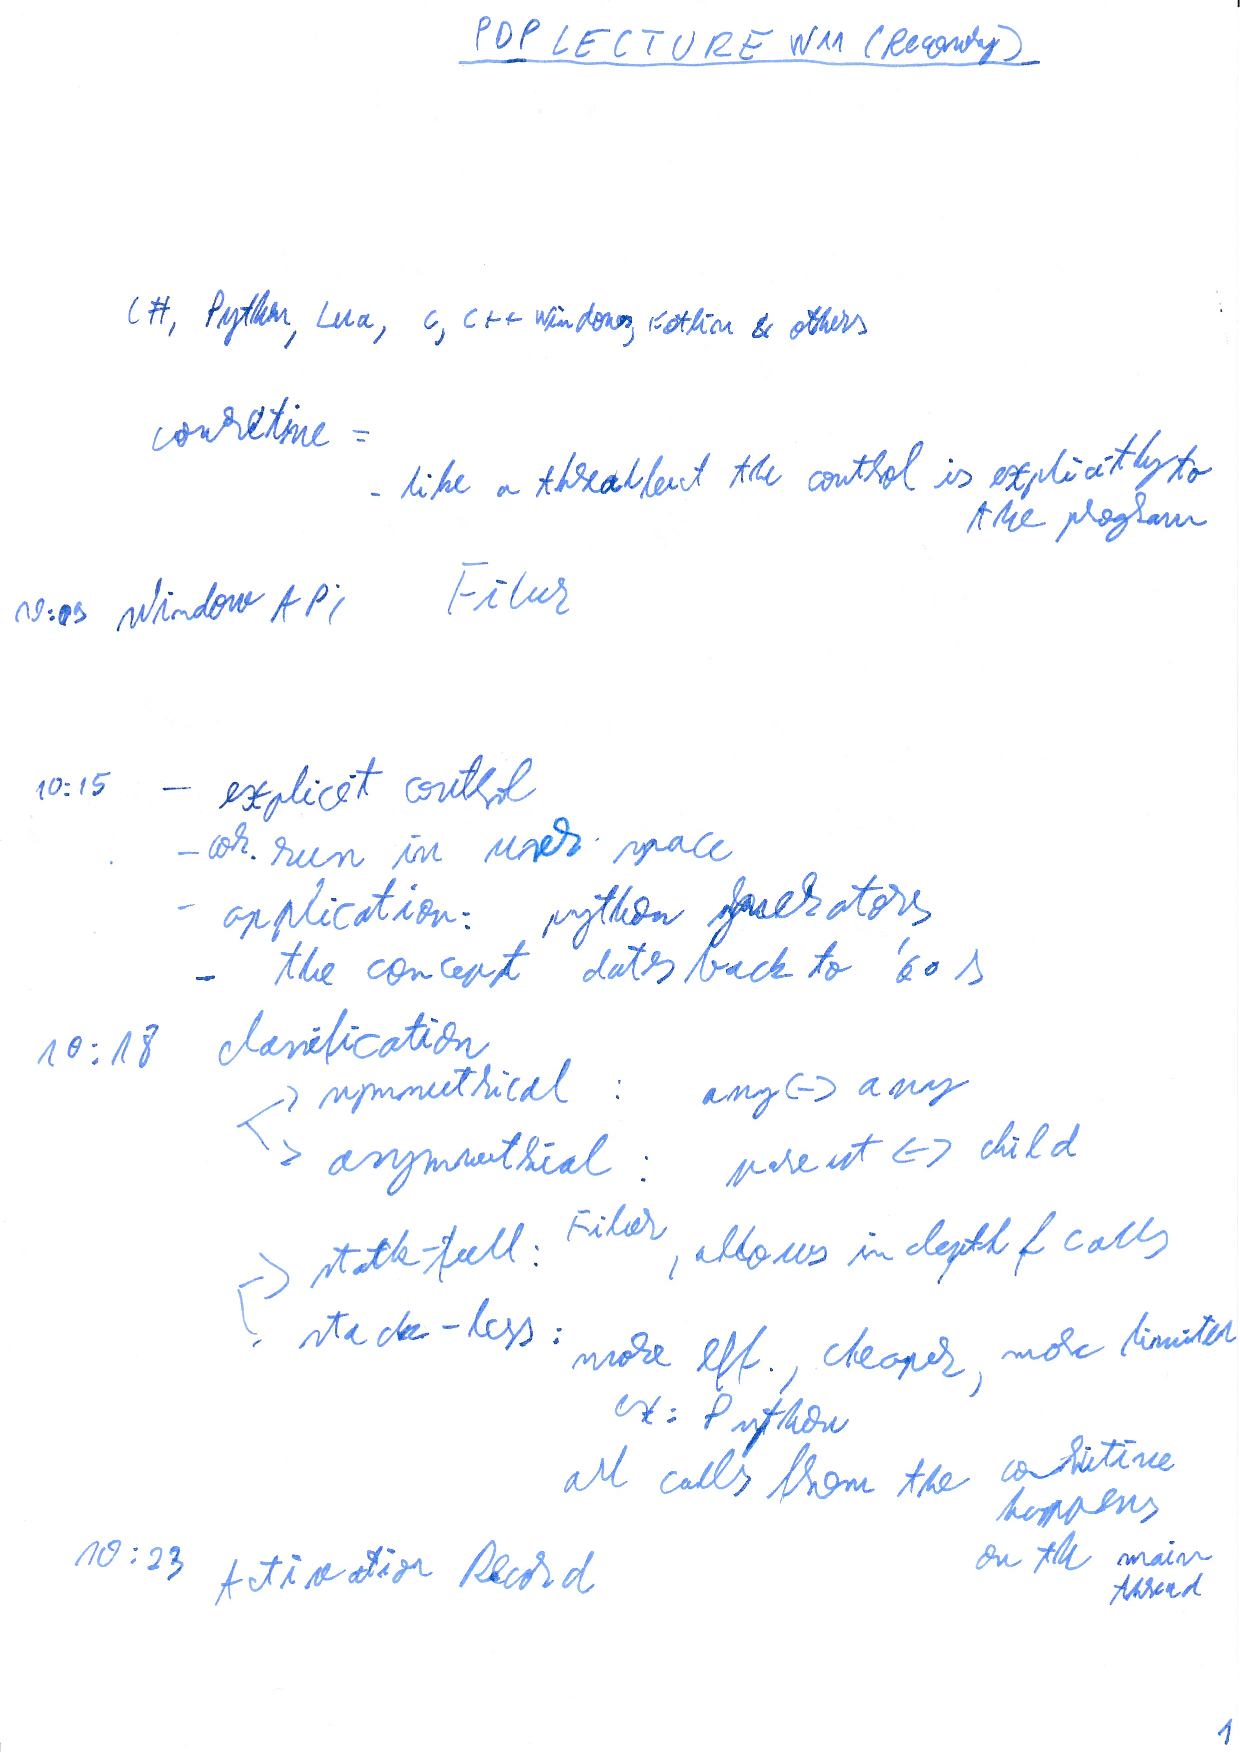 PDP LECTURE W11 (Recording)
C#, Python, Lua, C, C++ Windows, Kotlin & others
couroutine =
- like a thread but the control is explicitly to
the program
10:03 Window API Fiber
10:15 - explicit control
- cor. run in user space
- application: python generators
- the concept dates back to '60s
10:18 classification
-> symmetrical : any <-> any
-> asymmetrical : parent <-> child
-> stack-full: Fiber, allows in depth f calls
stack-less: more eff., cheaper, more limited
ex: Python
all calls from the coroutine
happens
on the main
thread
10:23 Activation Record
1